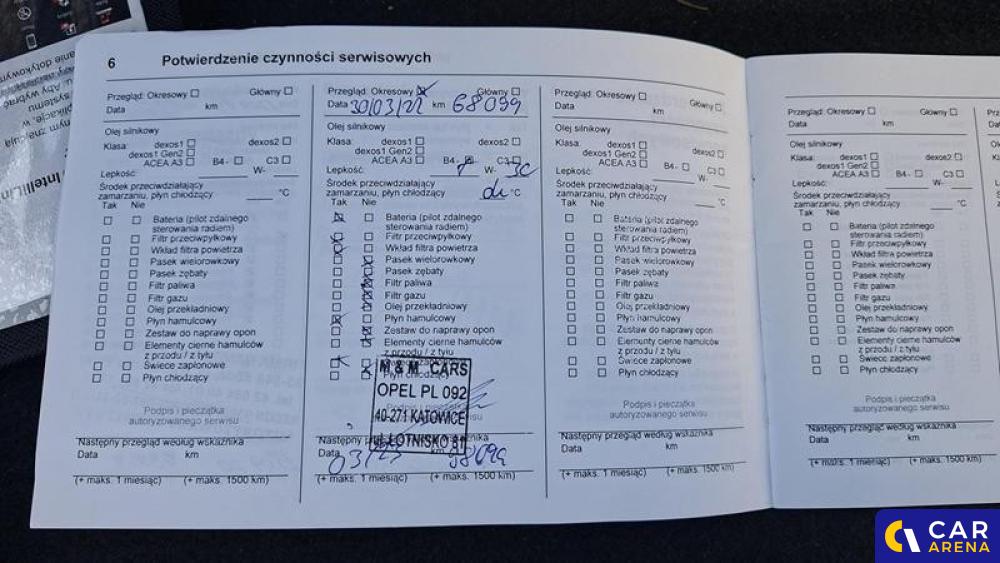 6 Potwierdzenie czynności serwisowych
Przegląd: Okresowy Główny
Data km
Olej silnikowy
Klasa: dexos1 dexos2
dexos1 Gen2
ACEA A3 B4- C3
Lepkość W-
Środek przeciwdziałający
zamarzaniu, płyn chłodzący °C
Tak Nie
Bateria (pilot zdalnego
sterowania radiem)
Filtr przeciwpyłkowy
Wkład filtra powietrza
Pasek wielorowkowy
Pasek zębaty
Filtr paliwa
Filtr gazu
Olej przekładniowy
Płyn hamulcowy
Zestaw do naprawy opon
Elementy cierne hamulców
z przodu / z tyłu
Świece zapłonowe
Płyn chłodzący
Podpis i pieczątka
autoryzowanego serwisu
Następny przegląd według wskaźnika
Data km
(+ maks. 1 miesiąc) (+ maks. 1500 km)
Przegląd: Okresowy Główny
Data 30/03/22 km 68099
Olej silnikowy
Klasa: dexos1 dexos2
dexos1 Gen2
ACEA A3 B4- C3
Lepkość W-
Środek przeciwdziałający
zamarzaniu, płyn chłodzący °C
Tak Nie
Bateria (pilot zdalnego
sterowania radiem)
Filtr przeciwpyłkowy
Wkład filtra powietrza
Pasek wielorowkowy
Pasek zębaty
Filtr paliwa
Filtr gazu
Olej przekładniowy
Płyn hamulcowy
Zestaw do naprawy opon
Elementy cierne hamulców
z przodu / z tyłu
Świece zapłonowe
Płyn chłodzący
M & M CARS
OPEL PL 092
40-271 KATOWICE
LOTNISKO 81
Następny
Data 03/23 km 98099
(+ maks. 1 miesiąc) (+ maks. 1500 km)
Przegląd: Okresowy Główny
Data km
Olej silnikowy
Klasa: dexos1 dexos2
dexos1 Gen2
ACEA A3 B4- C3
Lepkość W-
Środek przeciwdziałający
zamarzaniu, płyn chłodzący °C
Tak Nie
Bateria (pilot zdalnego
sterowania radiem)
Filtr przeciwpyłkowy
Wkład filtra powietrza
Pasek wielorowkowy
Pasek zębaty
Filtr paliwa
Filtr gazu
Olej przekładniowy
Płyn hamulcowy
Zestaw do naprawy opon
Elementy cierne hamulców
z przodu / z tyłu
Świece zapłonowe
Płyn chłodzący
Podpis i pieczątka
autoryzowanego serwisu
Następny przegląd według wskaźnika
Data km
(+ maks. 1 miesiąc) (+ maks. 1500 km)
Przegląd: Okresowy Główny
Data km
Olej silnikowy
Klasa: dexos1 dexos2
dexos1 Gen2
ACEA A3 B4- C3
Lepkość W-
Środek przeciwdziałający
zamarzaniu, płyn chłodzący °C
Tak Nie
Bateria (pilot zdalnego
sterowania radiem)
Filtr przeciwpyłkowy
Wkład filtra powietrza
Pasek wielorowkowy
Pasek zębaty
Filtr paliwa
Filtr gazu
Olej przekładniowy
Płyn hamulcowy
Zestaw do naprawy opon
Elementy cierne hamulców
z przodu / z tyłu
Świece zapłonowe
Płyn chłodzący
Podpis i pieczątka
autoryzowanego serwisu
Następny przegląd według wskaźnika
Data km
(+ maks. 1 miesiąc) (+ maks. 1500 km)
CAR
ARENA